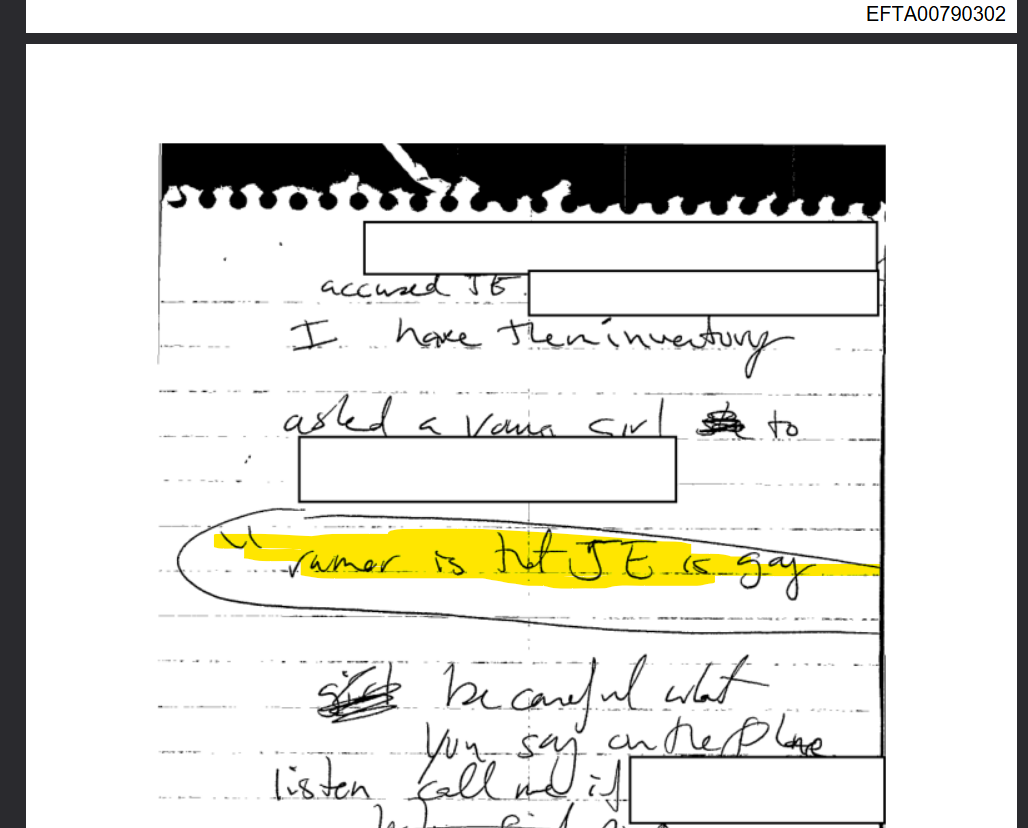 EFTA00790302
accused JE
I have the inventory
asked a young girl to
"rumor is that JE is gay
be careful what
you say on the phone
listen call me if